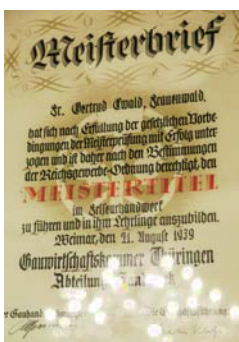 Meisterbrief
Fr. Gertrud Ewald, Frauenwald,
hat sich nach Erfüllung der gesetzlichen Vorbe-
dingungen der Meisterprüfung mit Erfolg unter-
zogen und ist daher nach den Bestimmungen
der Reichsgewerbe-Ordnung berechtigt, den
MEISTERTITEL
im Friseurhandwerk
zu führen und in ihm Lehrlinge auszubilden.
Weimar, den 21. August 1939
Gauwirtschaftskammer Thüringen
Abteilung